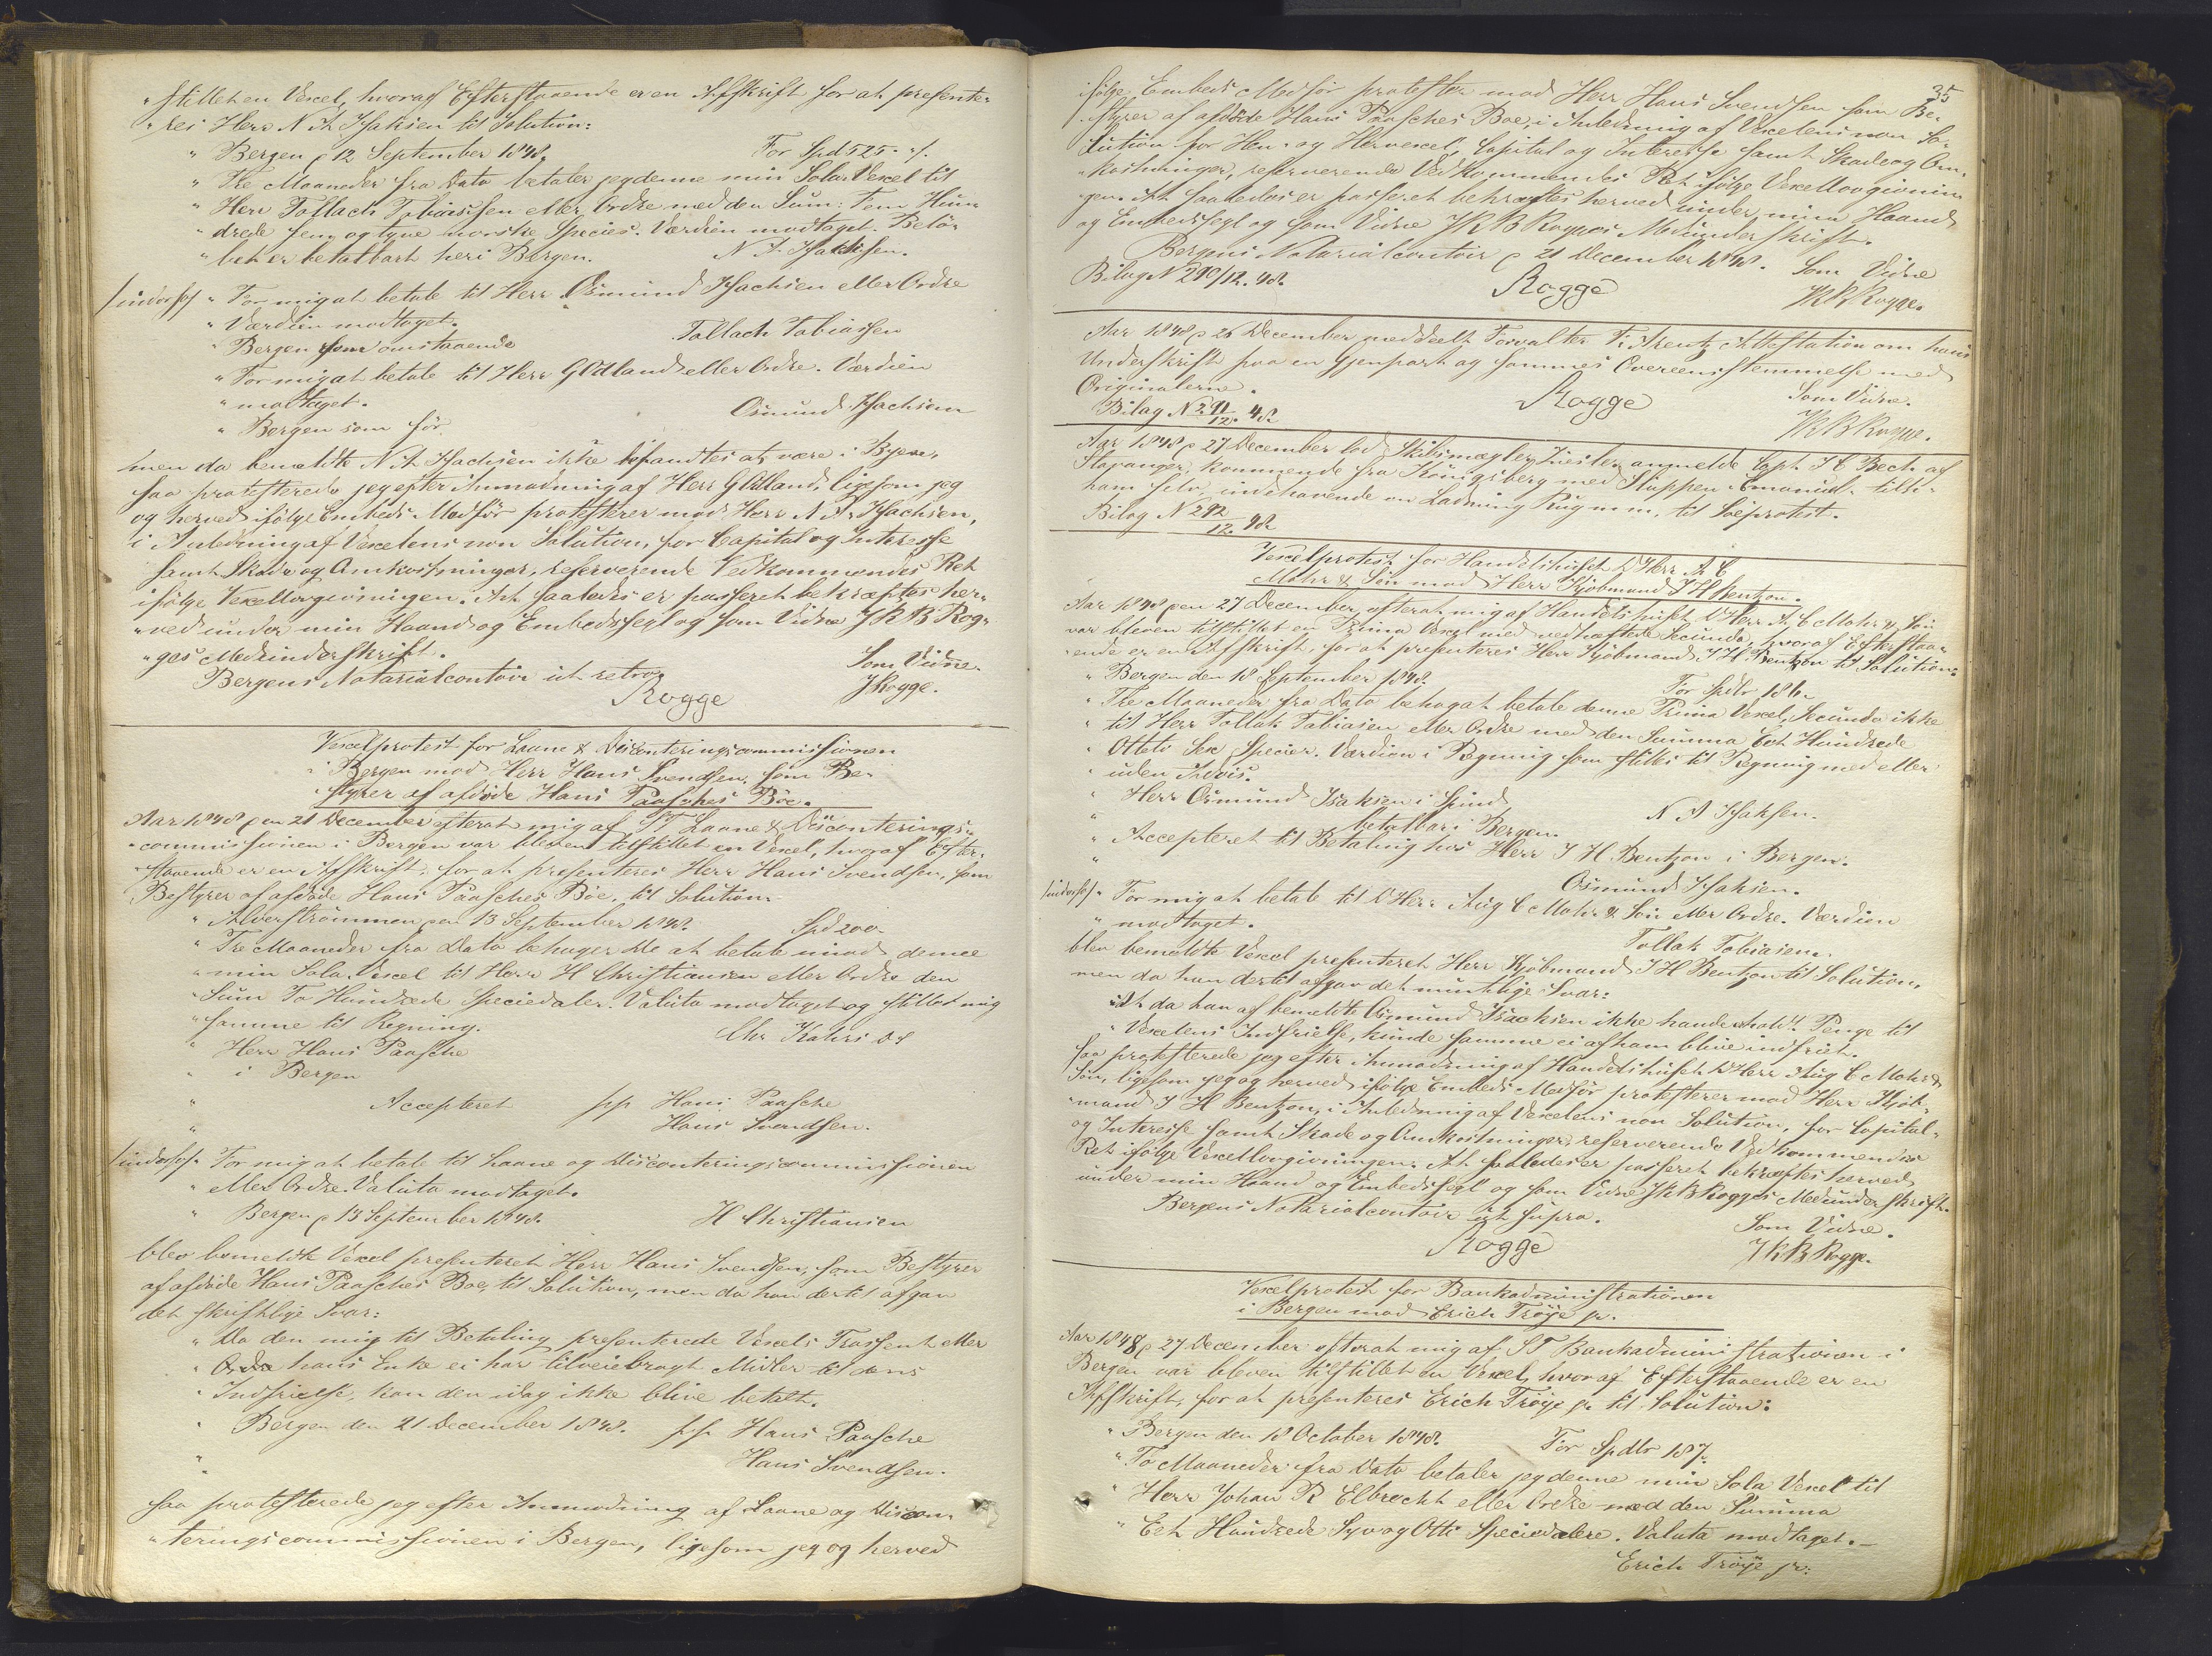 "stillet en Vexel, hvoraf Efterstaaende er en Afskrift for at presente-
"res Herr N A Isaksen til Solution:
" Bergen p 12 September 1848. For Spd 525 " /.
" Tre Maaneder fra Dato betaler jeg denne min Sola Vexel til
" Herr Tollach Tobiassen eller Ordre med den Sum: Fem Hun-
" drede fem og tyve norske Species. Værdien modtaget. Belö-
" bet er betalbart her i Bergen. N A Isaksen.
/indorso/ " For mig at betale til Herr Osmund Isachsen eller Ordre
" Værdien modtaget.
" Bergen som omstaaende Tollach Tobiassen
" For mig at betale til Herr G Odland eller Ordre. Værdien
" modtaget.
" Bergen som för. Osmund Isachsen
men da bemeldte N A Isachsen ikke befandtes at være i Byen,
saa protesterede jeg efter Anmodning af Herr G Odland, ligesom jeg
og herved ifölge Embeds Medför protesterer mod Herr N A Isachsen,
i Anledning af Vexelens non Solution, for Capital og Interesse
samt Skade og Omkostninger, reserverende Vedkommendes Ret
ifölge Vexellovgivningen. At saaledes er passeret bekræftes her-
"ved under min Haand og Embedssegl og som Vidne J K B Rog-
"ges Medunderskrift.
Bergens Notarialcontoir ut retro. Som Vidne.
Rogge J Rogge.
Vexelprotest for Laane & Disconteringscommissionen
i Bergen mod Herr Hans Svendsen, som Be-
styrer af afdöde Hans Paasches Boe.
Aar 1848 den 21 December efterat mig af ST Laane & Disconterings-
"commissionen i Bergen var bleven tilstillet en Vexel, hvoraf Efter-
"staaende er en Afskrift, for at presenteres Herr Hans Svendsen, som
Bestyrer af afdöde Hans Paasches Boe, til Solution.
" Alverströmmen den 13 September 1848. Spd 200.
" Tre Maaneder fra Dato behager De at betale imod denne
" min Sola Vexel til Herr H Christiansen eller Ordre den
" Sum To Hundrede Speciedaler. Valuta modtaget og stillet mig
" samme til Regning.
" Herr Hans Paasche
" i Bergen
" Accepteret pp Hans Paasche
" Hans Svendsen.
/indorso/ " For mig at betale til Laane og Disconteringscommissionen
" eller Ordre. Valuta modtaget.
" Bergen p 13 September 1848. H Christiansen
blev bemeldte Vexel presenteret Herr Hans Svendsen, som Bestyrer
af afdöde Hans Paasches Boe, til Solution, men da han dertil afgav
det skriftlige Svar:
" Da den mig til Betaling presenterede Vexels Trassent eller
" hans Enke ei har tilveiebragt Midler til dens
" Indfrielse, kan den idag ikke blive betalt.
" Bergen den 21 December 1848. pp Hans Paasche
" Hans Svendsen.
saa protesterede jeg efter Anmodning af Laane og Discon-
"teringscommissionen i Bergen, ligesom jeg og herved
35
ifölge Embeds Medför protester mod Herr Hans Svendsen som Be-
"styrer af afdöde Hans Paasches Boe, i Anledning af Vexelens non So-
"lution for Hen- og Hervexel, Capital og Interesse samt Skade og Om-
"kostninger, reserverende Vedkommendes Ret ifölge Vexellovgivnin-
"gen. At saaledes er passeret bekræftes herved under min Haand
og Embedssegl og som Vidne J K B Rogges Medunderskrift.
Bergens Notarialcontoir p 21 December 1848. Som Vidne
Bilag N 290/12. 48. Rogge JKB Rogge.
Aar 1848 p 26 December meddeelt Forvalter F. Arentz Attestation om hans
Underskrift paa en Gjenpart og sammes Overeensstemmelse med
Originalerne. Som Vidne.
Bilag N 291/12. 48 Rogge JKB Rogge.
Aar 1848 p 27 December lod Skibsmægler anmelde Capt. J C Bech af
Stavanger, kommende fra Königsberg med Skuppen Emanuel, tilh:
ham selv, indehavende en Ladning Rug m. m. til Söeprotest.
Bilag N 292/12. 48.
Vexelprotest for Handelshuset D'Herr A C
Mohr & Sön mod Herr Kjöbmand J H Bentzon.
Aar 1848 den 27 December, efterat mig af Handelshuset D'Herr A C Mohr & Sön
var bleven tilstillet en Prima Vexel med vedhæftede Secunda, hvoraf Efterstaa-
"ende er en Afskrift, for at presenteres Herr Kjöbmand J H Bentzon til Solution:
" Bergen den 18 September 1848. For Spdlr 186.
" Tre Maaneder fra Dato behag at betale denne Prima Vexel, Secunda ikke
" til Herr Tollak Tobiasen eller Ordre med den Summa Eet Hundrede
" Otteti Sex Species. Værdien i Regning som stilles til Regning med eller
" uden Advis.
" Herr Osmund Isaksen i Spind N A Isaksen.
" betalbar i Bergen.
" Accepteret til Betaling hos Herr J H Bentzon i Bergen.
" Osmund Isaksen.
/indorso/ " For mig at betale til D'Herr Aug C Mohr & Sön eller Ordre. Værdien
" modtaget. Tollak Tobiasen.
blev bemeldte Vexel presenteret Herr Kjöbmand J H Bentzon til Solution,
men da han dertil afgav det mundtlige Svar:
"At da han af bemeldte Osmund Isachsen ikke havde erholdt Penge til
" Vexelens Indfrielse, kunde samme ei af ham blive indfriet.
saa protesterede jeg efter Anmodning af Handelshuset D'Herr Aug C Mohr &
Sön, ligesom jeg og herved ifölge Embeds Medför protesterer mod Herr Kjöb-
"mand J H Bentzon, i Anledning af Vexelens non Solution, for Capital-
og Interesse samt Skade og Omkostninger, reserverende Vedkommendes
Ret ifölge Vexellovgivningen. At saaledes er passeret bekræftes herved
under min Haand og Embedssegl og som Vidne JKB Rogges Medunderskrift.
Bergens Notarialcontoir ut supra. Som Vidne.
Rogge JKB Rogge.
Vexelprotest for Bankadministrationen
i Bergen mod Erich Tröye jr.
Aar 1848 p 27 December efterat mig af ST Bankadministrationen i
Bergen var bleven tilstillet en Vexel, hvoraf Efterstaaende er en
Afskrift, for at presenteres Erich Tröye jr. til Solution:
" Bergen den 18 October 1848. For Spdlr 187.
" To Maaneder fra Dato betaler jeg denne min Sola Vexel til
" Herr Johan R Elbrecht eller Ordre med den Summa
" Eet Hundrede Syv og Otti Speciedalere. Valuta modtaget.—
Erich Tröye jr: